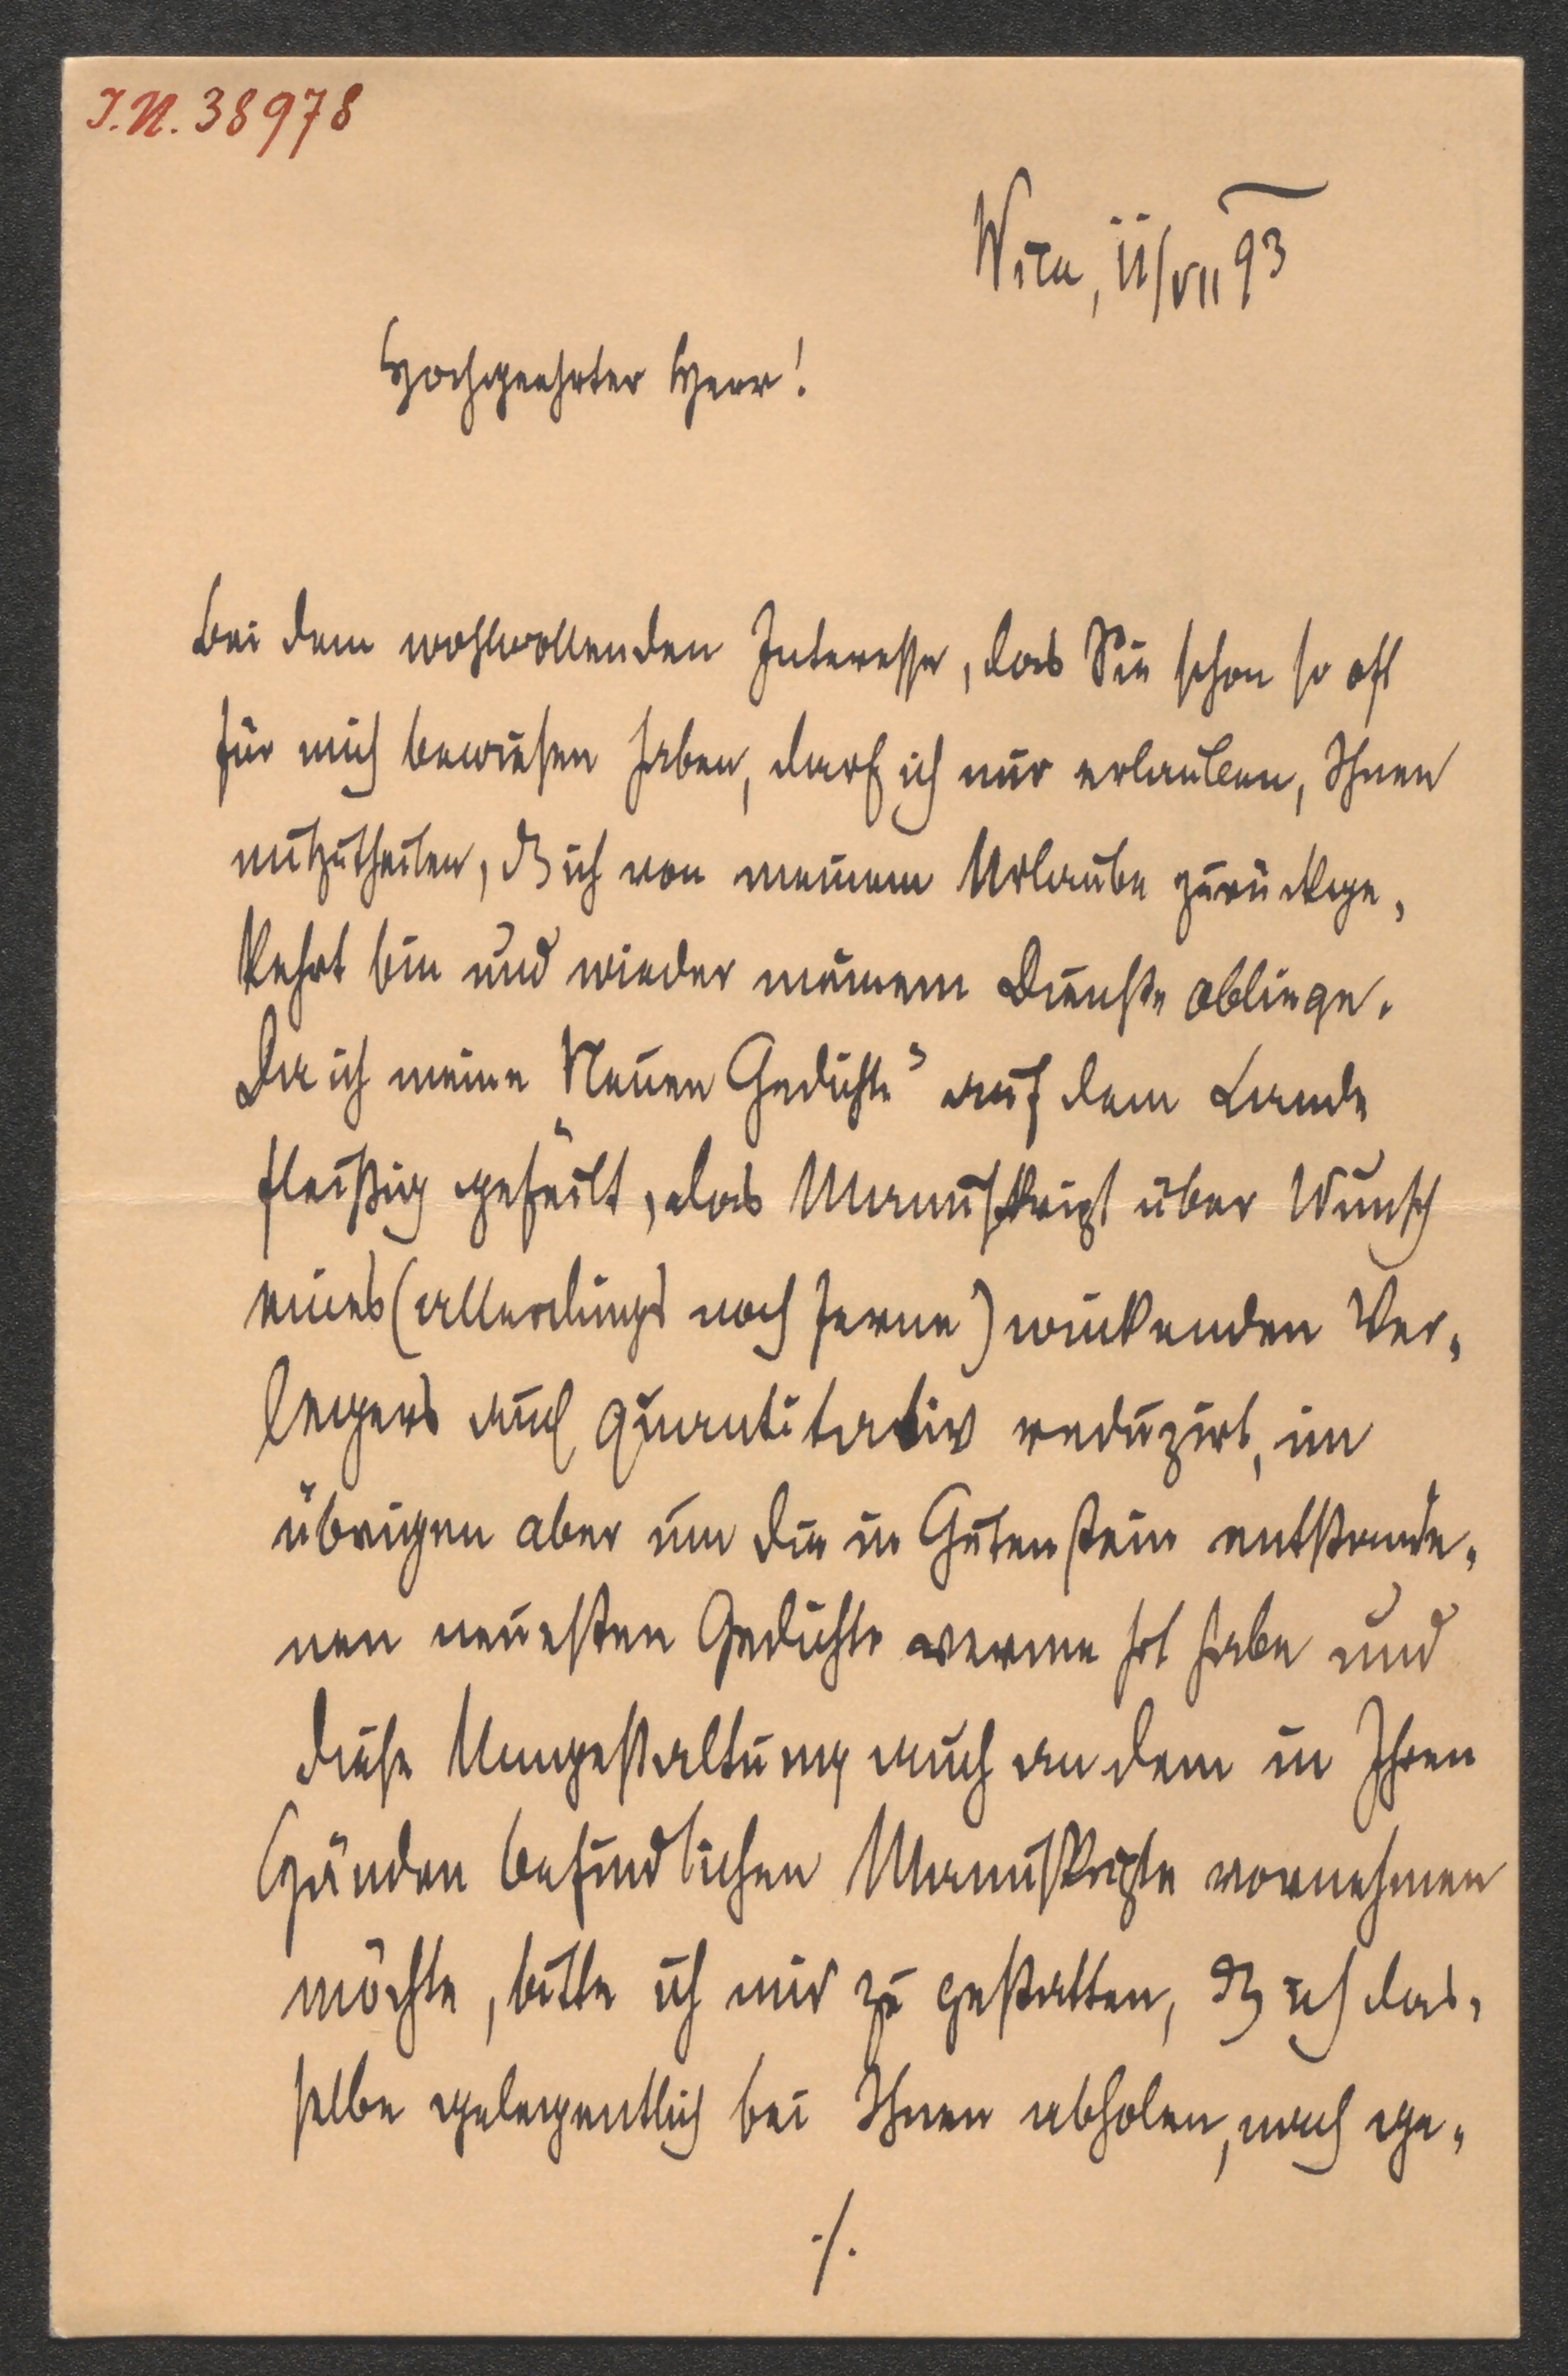 I.N. 38978
Wien, 11/VII 93
Hochgeehrter Herr!
Bei dem wohlwollenden Interesse, das Sie schon so oft
für mich bewiesen haben, darf ich mir erlauben, Ihnen
mitzutheilen, dß ich von meinem Urlaube zurückge-
kehrt bin und wieder meinem Dienste obliege.
Da ich meine „Neuen Gedichte“ auf dem Lande
fleißig gefeilt, das Manuskript über Wunsch
eines (allerdings noch ferne) winkenden Ver-
legers auch quantitativ reduzirt, im
übrigen aber um die in Gutenstein entstande-
nen neuesten Gedichte vermehrt habe und
diese Umgestaltung auch an dem in Ihren
Händen befindlichen Manuskripte vornehmen
möchte, bitte ich mir zu gestatten, dß ich das-
selbe gelegentlich bei Ihnen abholen, nach ge-
./.